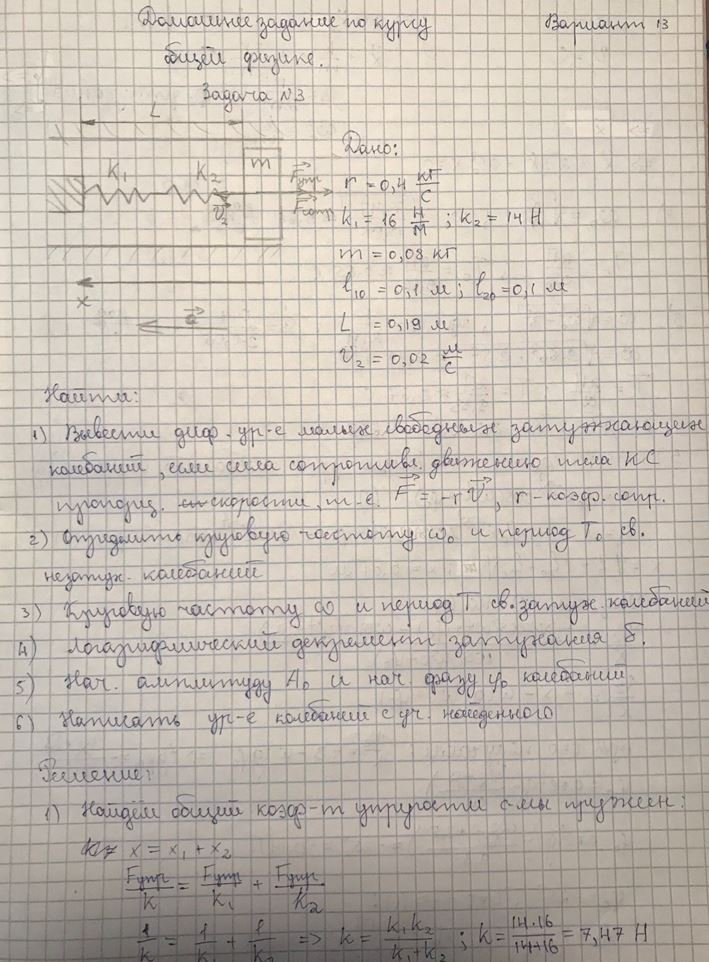 Домашнее задание по курсу Вариант 13
общей физике.
Задача N3
L
k₁ k₂ m
F⃗упр
F⃗сопр
v⃗₂
x
a⃗
Дано:
r = 0,4 кг/с
k₁ = 16 Н/м ; k₂ = 14 Н
m = 0,08 кг
l₁₀ = 0,1 м ; l₂₀ = 0,1 м
L = 0,19 м
v₂ = 0,02 м/с
Найти:
1) Вывести диф. ур-е малых свободных затухающих
колебаний, если сила сопротивл. движению тела КС
пропорц. скорости, т-е. F⃗ = -rV⃗, r - коэф. сопр.
2) Определить круговую частоту ω₀ и период T₀ св.
незатух. колебаний
3) Круговую частоту ω и период T св. затух. колебаний
4) Логарифмический декремент затухания δ.
5) Нач. амплитуду A₀ и нач. фазу φ₀ колебаний
6) Написать ур-е колебаний с уч. найденного
Решение:
1) Найдём общий коэф-т упругости с-мы пружин:
x = x₁ + x₂
Fупр/k = Fупр/k₁ + Fупр/k₂
1/k = 1/k₁ + 1/k₂ => k = k₁k₂/k₁+k₂ ; k = 14·16/14+16 = 7,47 Н